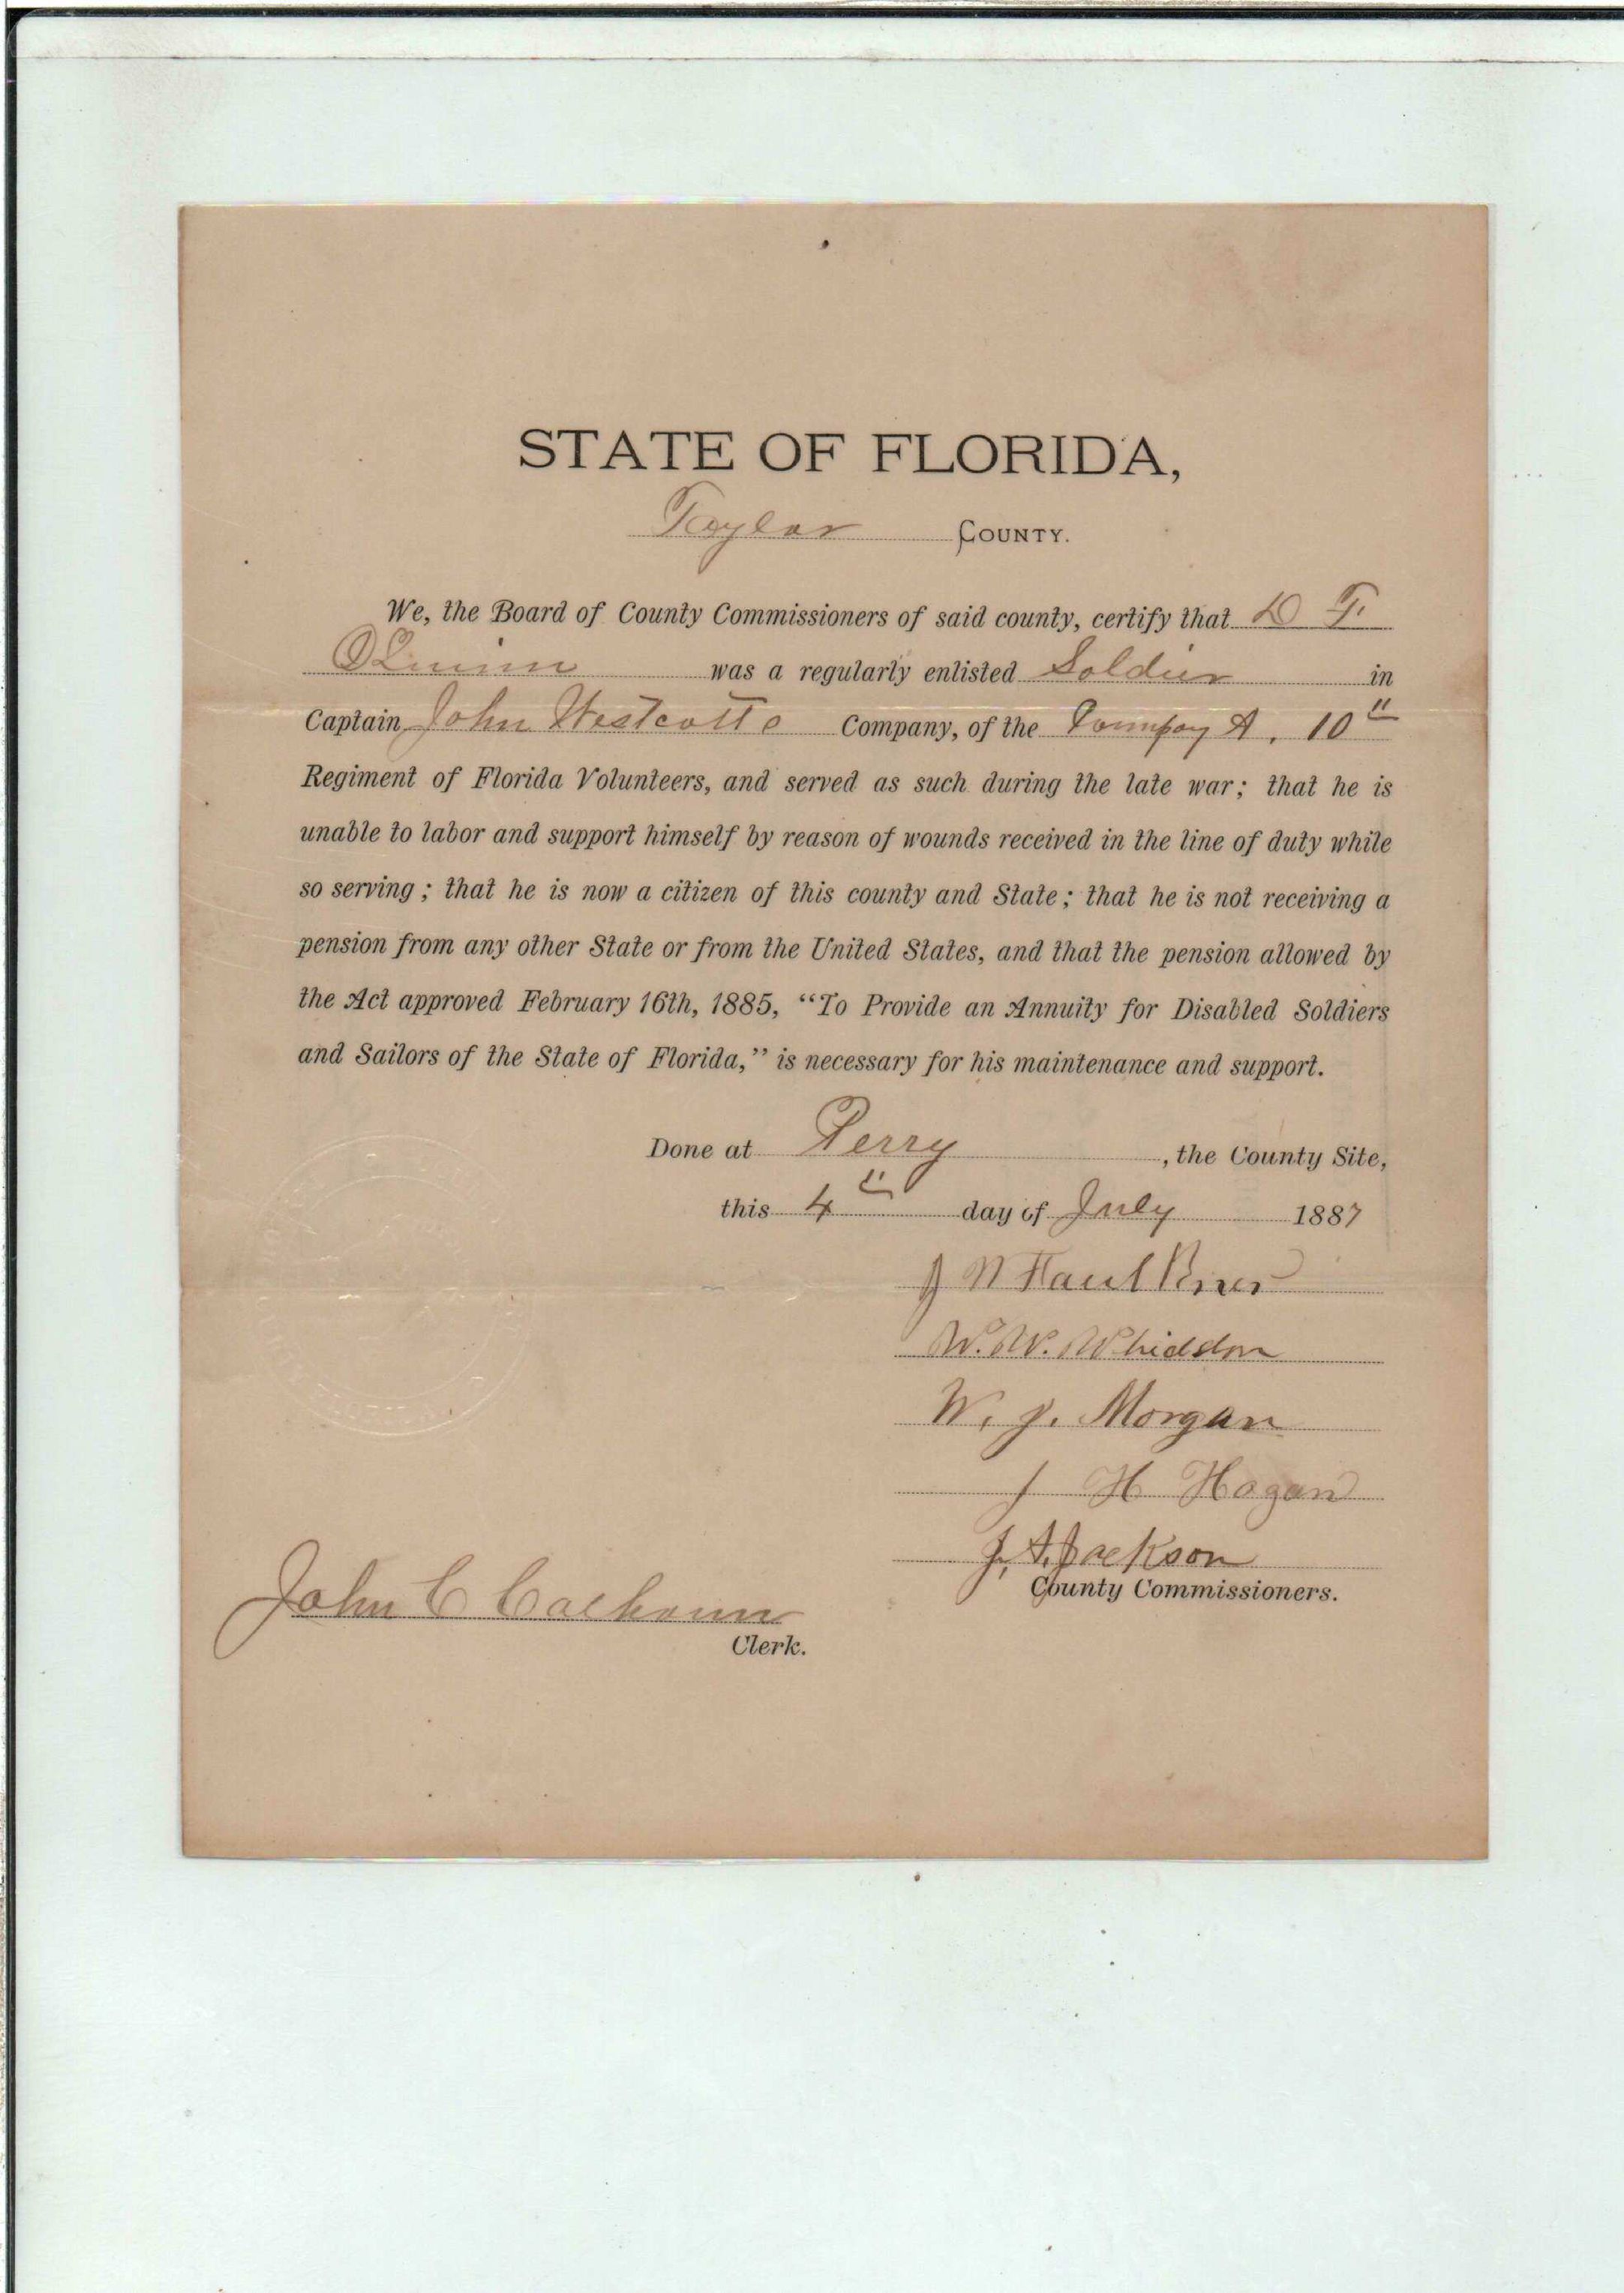 STATE OF FLORIDA,
Taylor COUNTY.
We, the Board of County Commissioners of said county, certify that D T.
OQuinn was a regularly enlisted Soldier in
Captain John Westcotts Company, of the Compay A, 10th
Regiment of Florida Volunteers, and served as such during the late war; that he is
unable to labor and support himself by reason of wounds received in the line of duty while
so serving; that he is now a citizen of this county and State; that he is not receiving a
pension from any other State or from the United States, and that the pension allowed by
the Act approved February 16th, 1885, “To Provide an Annuity for Disabled Soldiers
and Sailors of the State of Florida,” is necessary for his maintenance and support.
Done at Perry, the County Site,
this 4th day of July 1887
J N Faulkner
W. W. Whiddon
W. J. Morgan
J H Hogan
J. A. Jackson
County Commissioners.
John C Calhoun
Clerk.